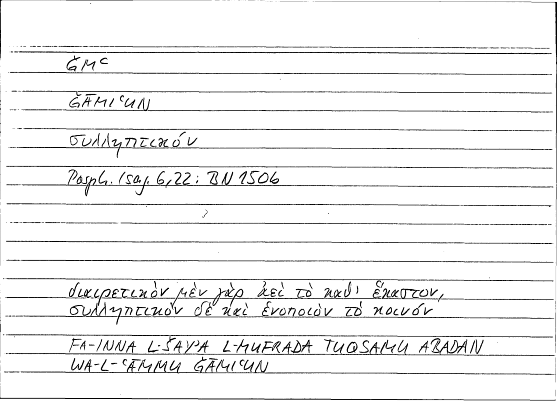 ǦMʿ
ǦĀMIʿUN
συλληπτικόν
Porph. Isag. 6,22: BN 150b
διαιρετικὸν μὲν γὰρ ἀεὶ τὸ καθ' ἕκαστον,
συλληπτικὸν δὲ καὶ ἑνοποιὸν τὸ κοινόν
FA-INNA L-ŠAYʾA L-MUFRADA TUQSAMU ABADAN
WA-L-ʿĀMMU ǦĀMIʿUN